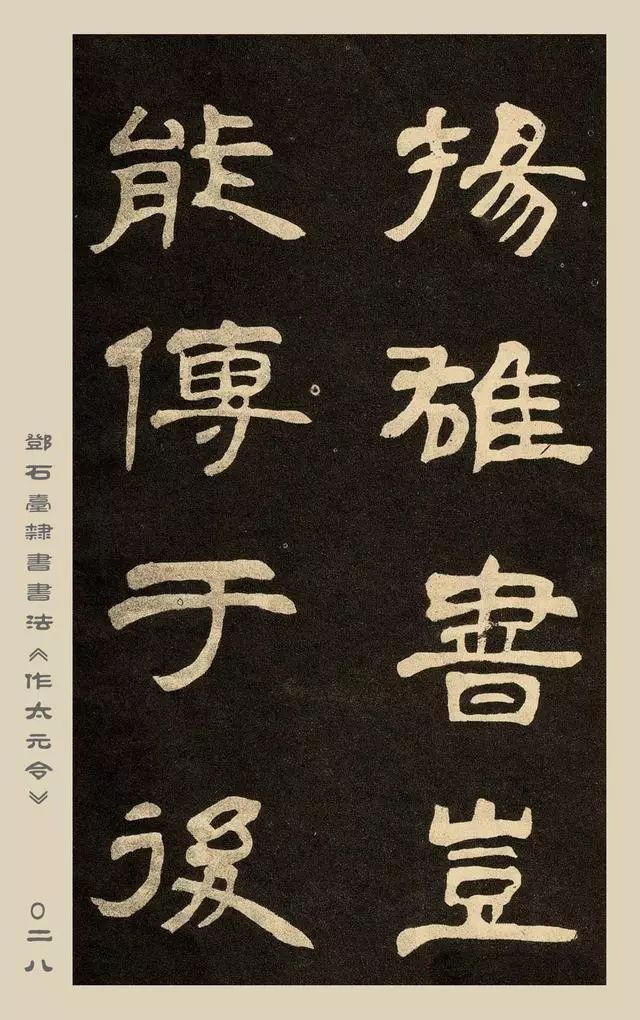 揚雄書豈
能傳于後
鄧石臺隸書書法《作太元令》
〇二八